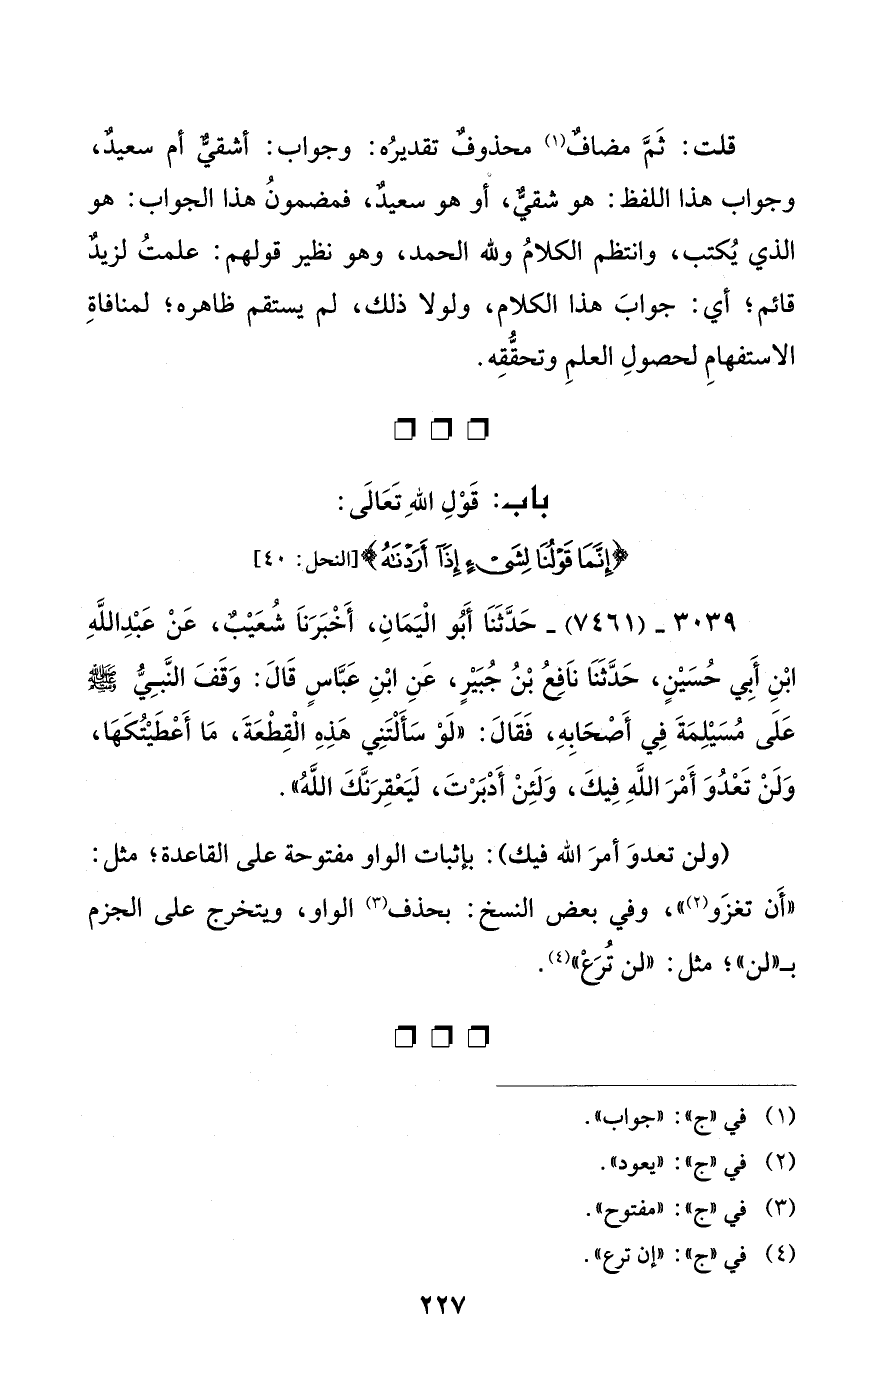 قلت: ثَمَّ مضافٌ(١) محذوفٌ تقديرُه: وجواب: أشقيٌّ أم سعيدٌ،
وجواب هذا اللفظ: هو شقيٌّ، أو هو سعيدٌ، فمضمونُ هذا الجواب: هو
الذي يُكتب، وانتظم الكلامُ ولله الحمد، وهو نظير قولهم: علمتُ لزيدٌ
قائم؛ أي: جوابَ هذا الكلام، ولولا ذلك، لم يستقم ظاهره؛ لمنافاةِ
الاستفهامِ لحصولِ العلمِ وتحقُّقِه.
باب: قَوْلِ اللهِ تَعَالَى:
﴿إِنَّمَا قَوْلُنَا لِشَىْءٍ إِذَآ أَرَدْنَٰهُ﴾[النحل: ٤٠]
٣٠٣٩ ـ (٧٤٦١) ـ حَدَّثَنَا أَبُو الْيَمَانِ، أَخْبَرَنَا شُعَيْبٌ، عَنْ عَبْدِاللَّهِ
ابْنِ أَبِي حُسَيْنٍ، حَدَّثَنَا نَافِعُ بْنُ جُبَيْرٍ، عَنِ ابْنِ عَبَّاسٍ قَالَ: وَقَفَ النَّبِيُّ ﷺ
عَلَى مُسَيْلِمَةَ فِي أَصْحَابِهِ، فَقَالَ: «لَوْ سَأَلْتَنِي هَذِهِ الْقِطْعَةَ، مَا أَعْطَيْتُكَهَا،
وَلَنْ تَعْدُوَ أَمْرَ اللَّهِ فِيكَ، وَلَئِنْ أَدْبَرْتَ، لَيَعْقِرَنَّكَ اللَّهُ».
(ولن تعدوَ أمرَ الله فيك): بإثبات الواو مفتوحة على القاعدة؛ مثل:
«أَن تغزَو(٢)»، وفي بعض النسخ: بحذف(٣) الواو، ويتخرج على الجزم
بـ«لن»؛ مثل: «لن تُرَعْ»(٤).
(١) في «ج»: «جواب».
(٢) في «ج»: «يعود».
(٣) في «ج»: «مفتوح».
(٤) في «ج»: «إن ترع».
٢٢٧